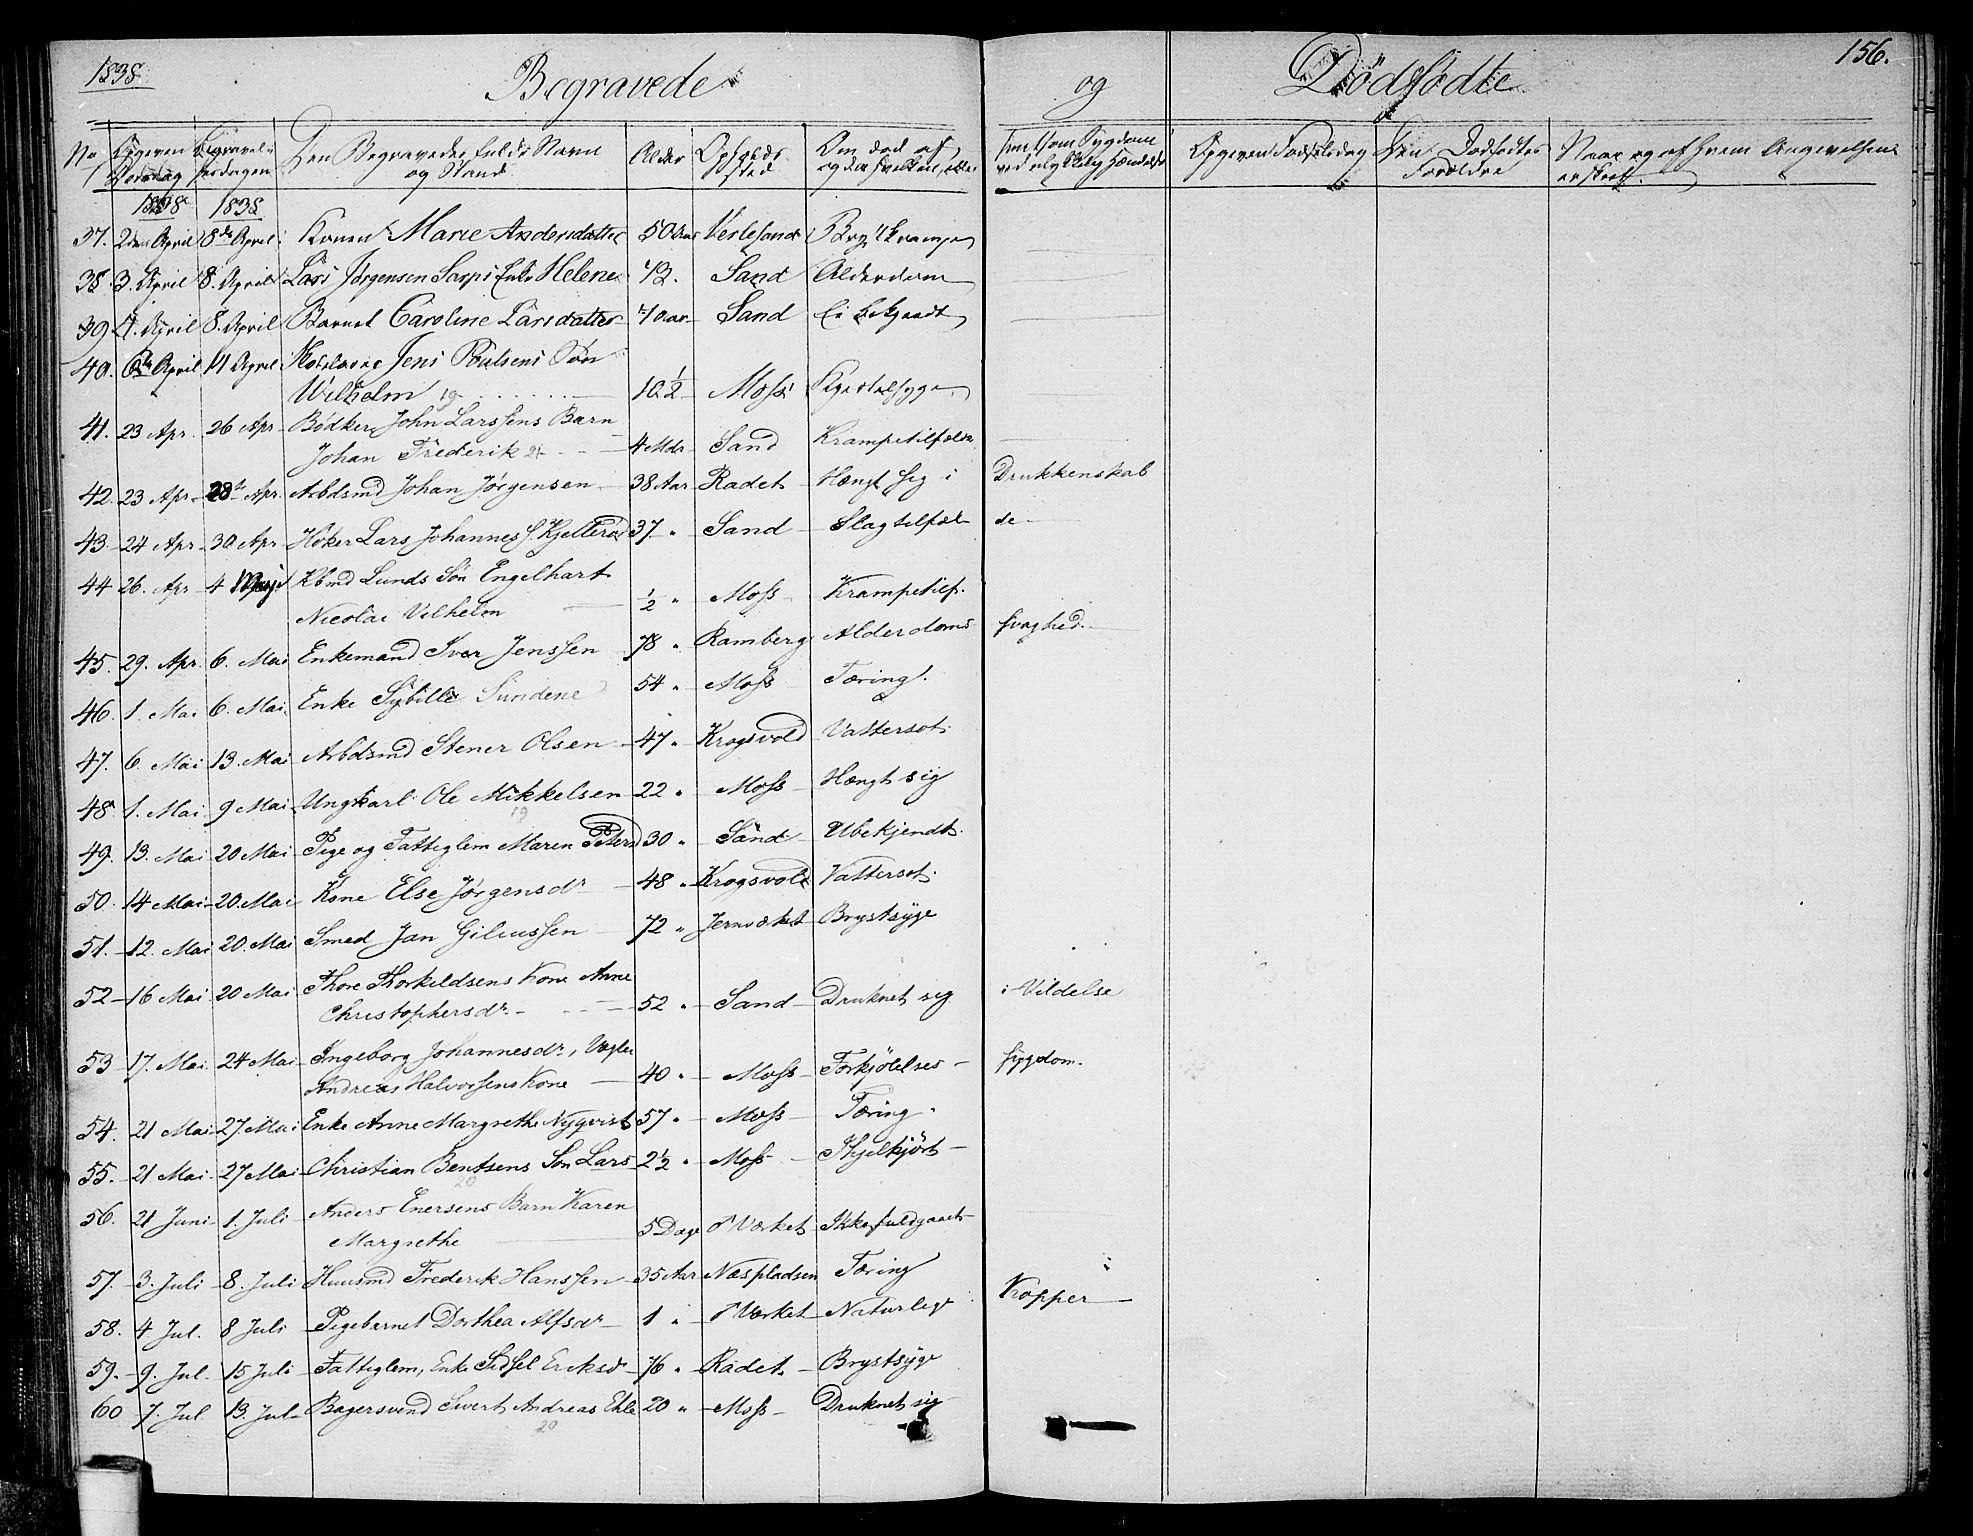 1838. Begravede og Dødfødte 156.
No Opgiven Dødsdag Begravelsesdagen Den Begravedes fulde Navn og Stand Alder Opholdssted Om død af Opgiven Fødselsdag Den Dødfødtes Forældre Naar og af hvem Angivelsen er skeet.
1838 1838
37. 2den April 8de April Konen Marie Andersdatter 50 Aar Verlesand
38. 3. April 8. April Lars Jørgensen Sarps Enke Helene 73. Sand Alderdom
39. 4. April 8. April Barnet Caroline Larsdatter Sand Ei bekjendt
40. 6te April 11 April Jens Poulsens Søn
Wilhelm 19 10½ Moss
41. 23 Apr. 26 Apr. Bødker John Larssens Barn
Johan Frederik 4 Mdr Sand Krampetilfælde
42. 23 Apr. 28de Apr. Arbdsmd Johan Jørgensen 38 Aar Radet Hængt sig i Drukkenskab
43. 24 Apr. 30 Apr Høker Lars Johanness. Kjellerød 37 " Sand Slagtilfælde
44 26. Apr 4 Maji Kbmd Lunds Søn Engelhart
Nicolai Vilhelm ½ " Moss Krampetilf.
45. 29. Apr. 6. Mai Enkemand Iver Jenssen 78 " Ramberg Alderdomssvaghed
46. 1. Mai 6. Mai. Enke Sybille Sundene 54 " Moss Tæring.
47. 6. Mai 13. Mai Arbdsmd Stener Olsen 47 " Krogsvold Vattersot.
48. 1. Mai 9 Mai Ungkarl Ole Mikkelsen 22 " Moss Hængt sig
19
49. 13. Mai 20 Mai Pige og Fattiglem Maren Petersd 30 " Sand Ubekjendt.
50. 14 Mai 20. Mai Kone Else Jørgensdr 48 " Krogsvold Vattersot.
51. 12. Mai 20. Mai Smed Jan Giliussen 72 " Jernværket Brystsyge
52 16 Mai 20 Mai Thore Thorkildsens Kone Anne
Christophersdr. 52 " Sand Druknet sig i Vildelse
53 17. Mai 24 Mai Ingeborg Johannesdr, Vægter
Andreas Halvorsens Kone 40 " Moss Forkjølelses- sygdom.
54. 21 Mai 27. Mai Enke Anne Margrethe Nyqvist 57 " Moss Tæring.
55. 21 Mai 27 Mai Christian Bentsens Søn Lars 2½ " Moss Ihjelkjørt
20
56. 21 Juni 1. Juli Anders Enersens Barn Karen
Margrethe 5 Dage Værket Ikke fuldgaaet
57. 3. Juli 8. Juli Huusmd Frederik Hanssen 35 Aar Næspladsen Tæring
58. 4 Jul. 8 Juli Pigebarnet Dorthea Alfsdr 1 " Værket Naturlige Kopper
59. 9. Jul. 15 Juli Fattiglem, Enke Sidsel Eriksdr 76 " Radet Brystsyge
60 7. Jul 13. Jul Bagersvend Sivert Andreas Ehle 20 " Moss Druknet sig
20